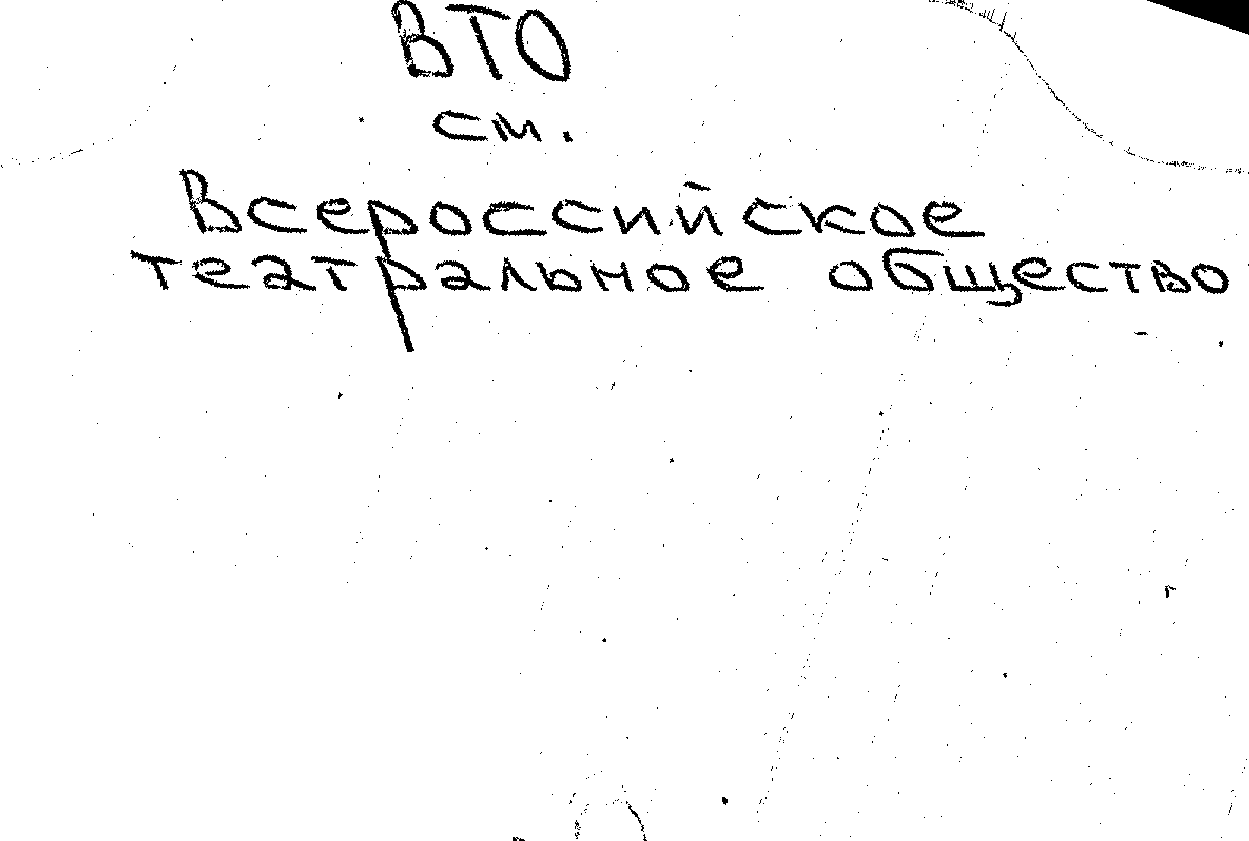 ВТО
см.
Всероссийское
театральное общество